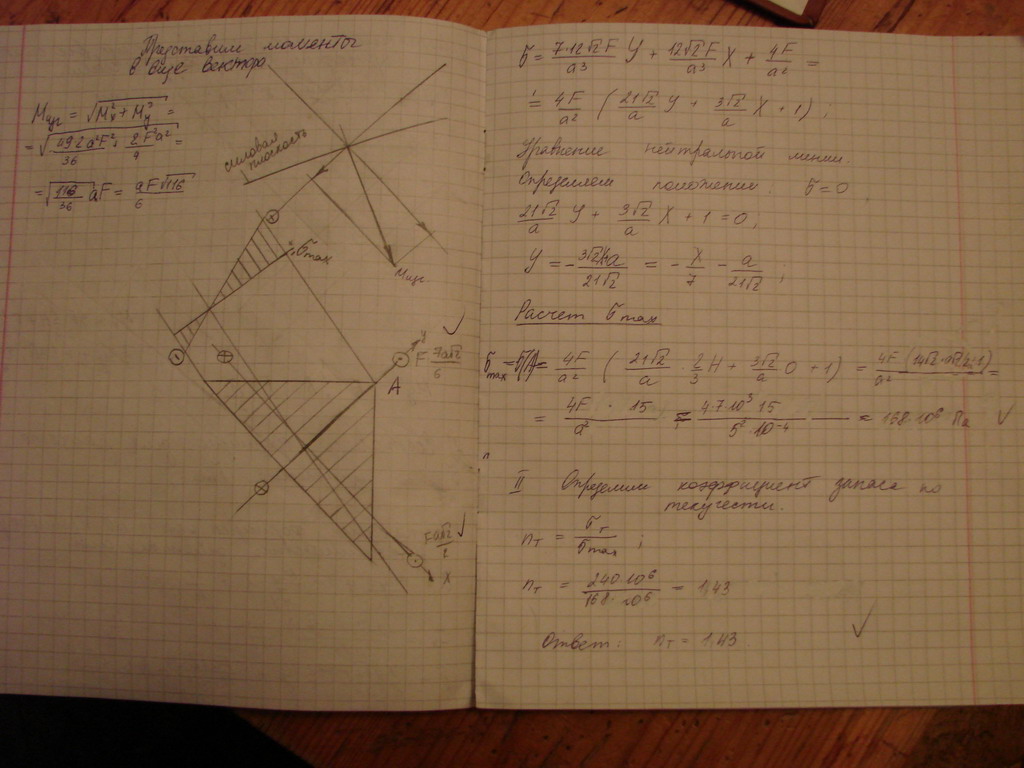 Представим моменты
в виде вектора
Mизг = √(Mx² + My²) =
= √(49·2a²F²/36 + 2F²a²/4) =
= √(116/36) aF = aF√116/6
силовая
плоскость
Mизг
+
σmax
-
+
y
- F 7a√2/6
A
+
Fa√2/2
-
x
σ = 7·12√2F/a³ y + 12√2F/a³ x + 4F/a² =
= 4F/a² (21√2/a y + 3√2/a x + 1) ;
Уравнение нейтральной линии.
Определяем положение: σ=0
21√2/a y + 3√2/a x + 1 = 0,
= - x/7 - a/21√2 ;
Расчет σmax
σmax = σ(A) = 4F/a² (21√2/a · 2/3 H + 3√2/a 0 + 1) =
= 4F · 15/a² = 4·7·10³·15/5²·10⁻⁴ = 168·10⁶ Па
II Определим коэффициент запаса по
текучести.
nт = σт/σmax ;
nт = 240·10⁶/168·10⁶ = 1,43
Ответ: nт = 1,43.